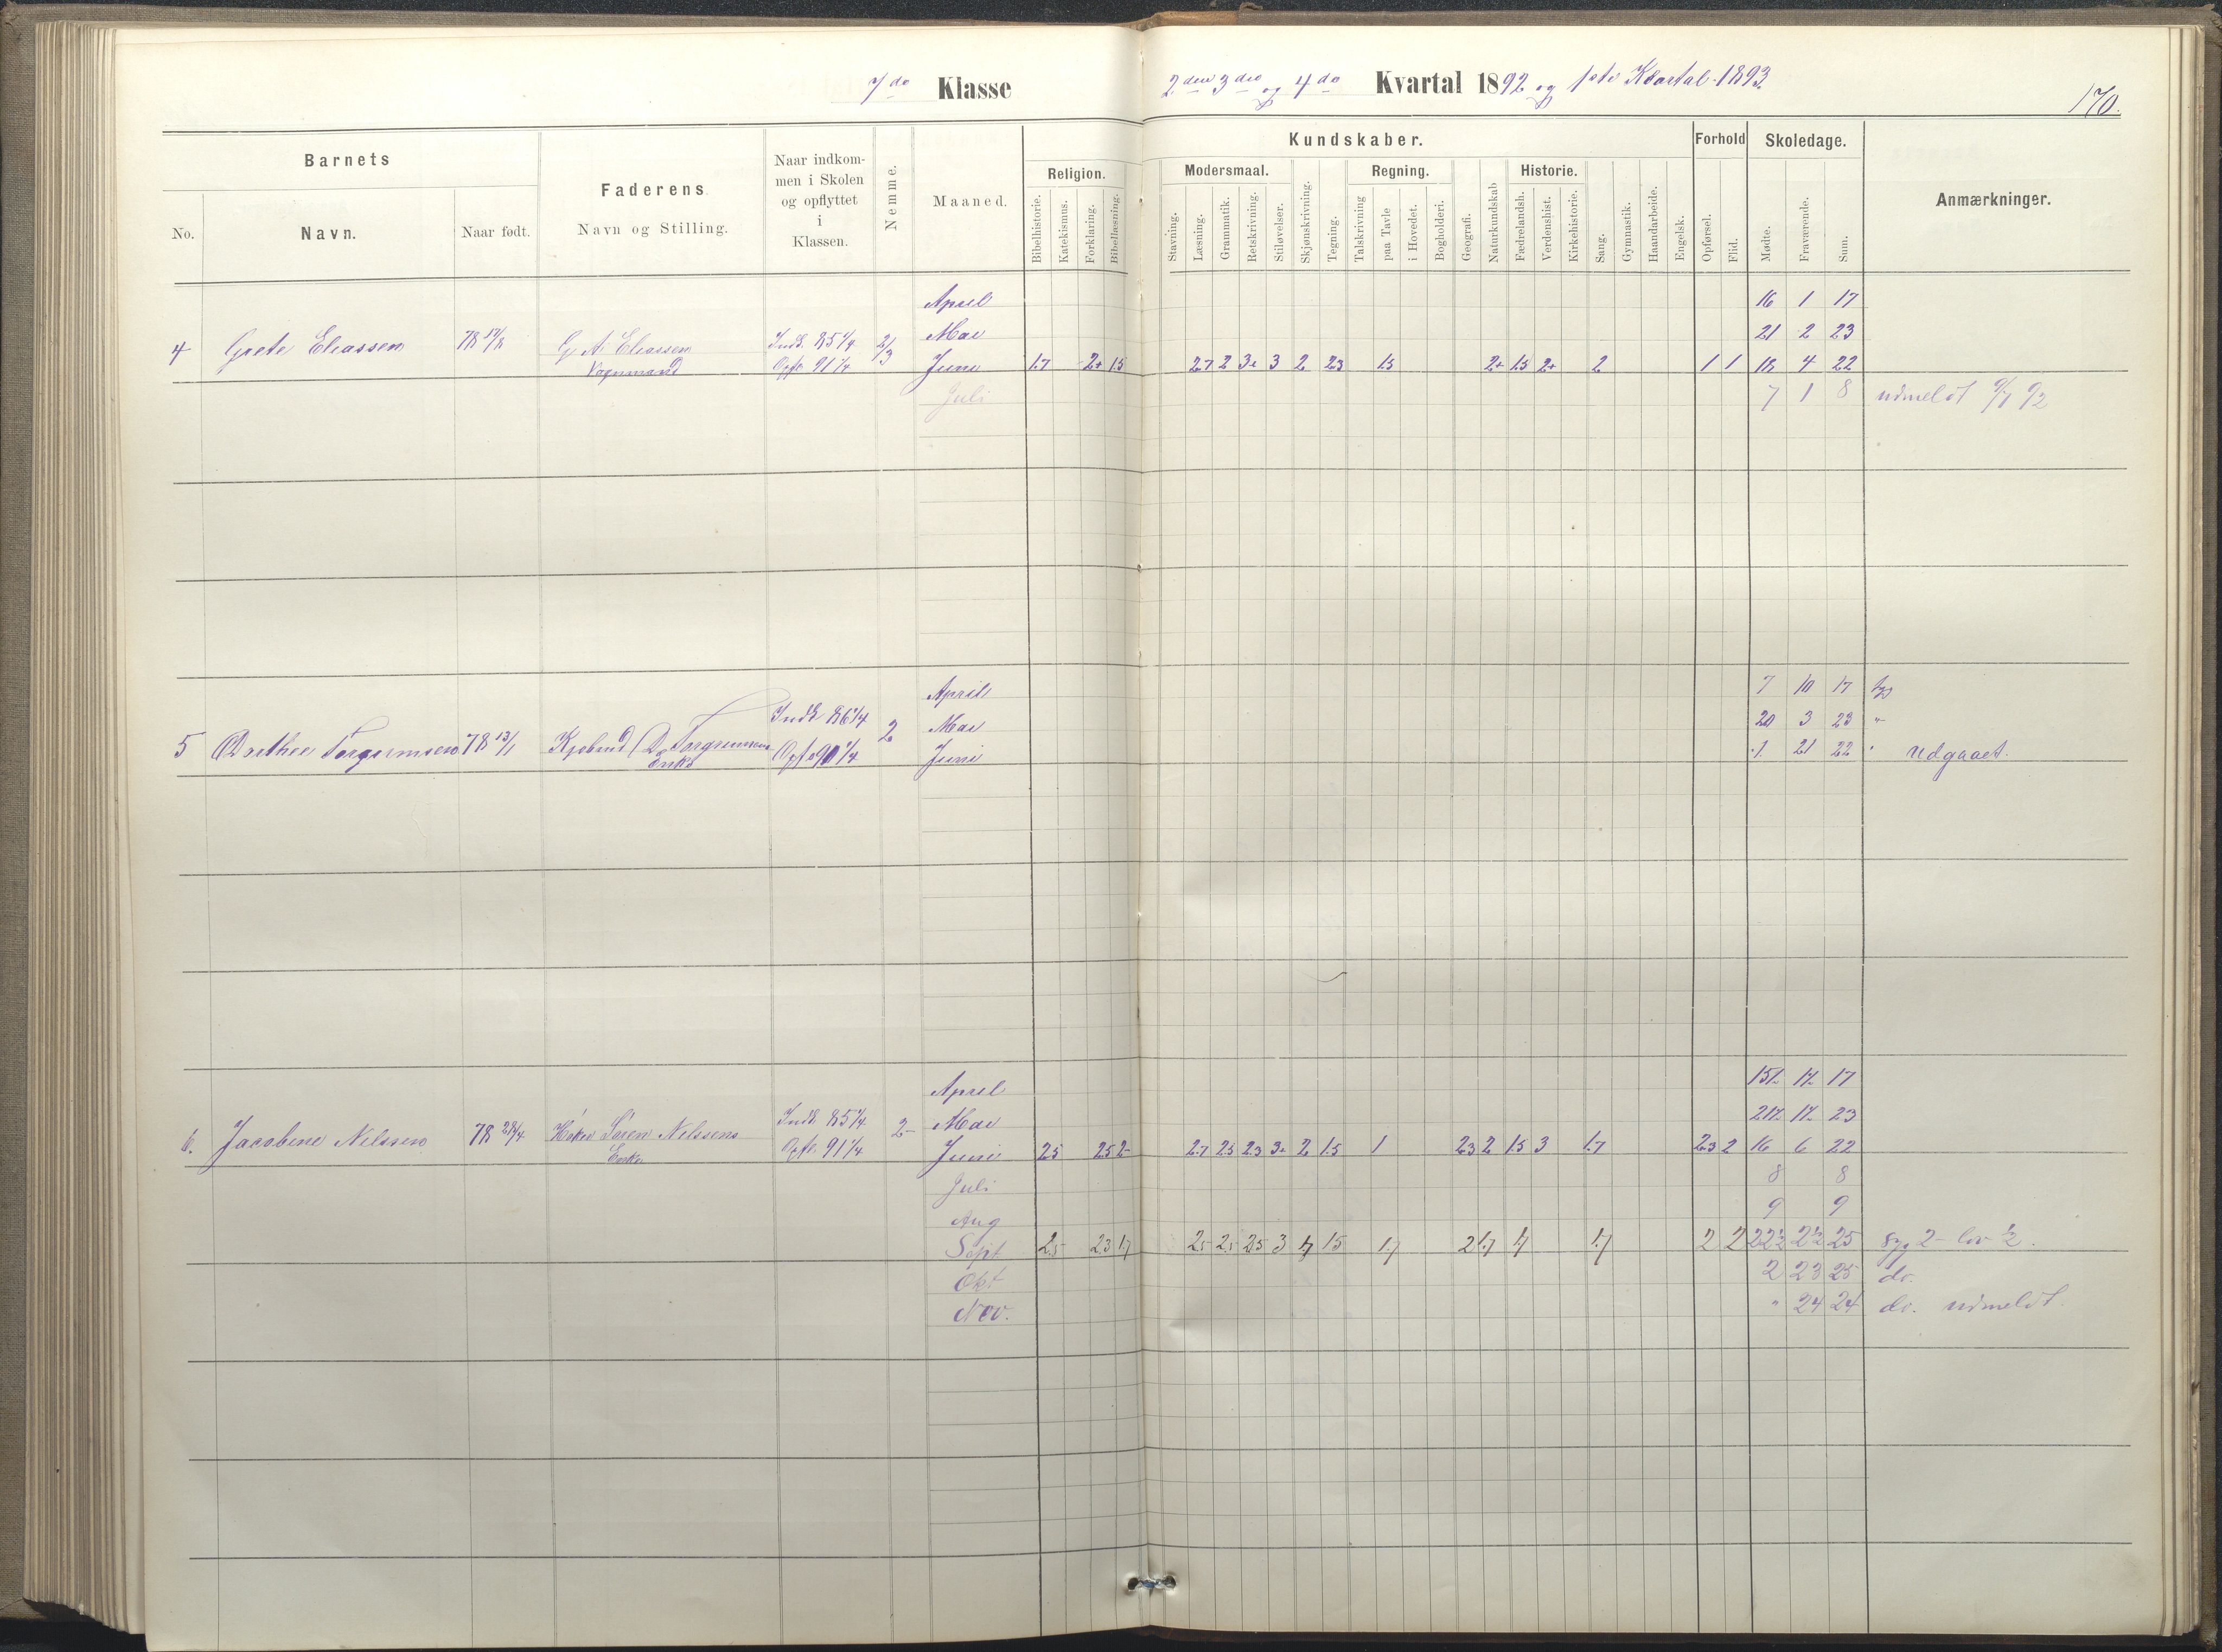 7de Klasse
2den 3die og 4de Kvartal 1892 og 1ste Kvartal 1893.
170.
Barnets
No.
Navn.
Naar født.
Faderens
Navn og Stilling.
Naar indkom-
men i Skolen
og opflyttet
i
Klassen.
Nemme.
Maaned.
Kundskaber.
Religion.
Bibelhistorie.
Katekismus.
Forklaring.
Bibellæsning.
Modersmaal.
Stavning.
Læsning.
Grammatik.
Retskrivning.
Stiløvelser.
Skjønskrivning.
Tegning.
Regning.
Talskrivning
paa Tavle
i Hovedet.
Bogholderi.
Geografi.
Naturkundskab
Historie.
Fædrelandsh.
Verdenshist.
Kirkehistorie.
Sang.
Gymnastik.
Haandarbeide.
Engelsk.
Forhold
Opførsel.
Flid.
Skoledage.
Mødte.
Fraværende.
Sum.
Anmærkninger.
April 16 1 17
Mai 21 2 23
4 Grete Eliassen 78 G. A. Eliassen Indk. 85 1/4 2/3
Vognmand Opfl. 91 1/4
Juni 1.7 2+ 1.5 2.7 2 3+ 3 2 2.3 1.5 2+ 1.5 2+ 2 1 1 18 4 22
Juli 7 1 8 udmeldt 9/7 92
April 7 10 17 syg
Mai 20 3 23 "
5 Dorthea Torgrimsen 78 13/1 Kjøbmd D. Torgrimsens Indk 86 1/4 2
Enke Opfl. 90 1/4
Juni 1 21 22 " udgaaet.
April 15½ 1½ 17
Mai 21½ 1½ 23
6. Jacobine Nilssen 78 28/4 Søren Nilssens Indk 85 1/4 2-
Enke Opfl. 91 1/4
Juni 2.5 2.5 2- 2.7 2.5 2.3 3+ 2 1.5 1 2.3 2 1.5 3 1.7 2.3 2 16 6 22
Juli 8 8
Aug 9 9
Sept 2.5 2.3 1.7 2.5 2.5 2.5 3 1.7 1.5 1.7 2 1.7 1.7 1.7 2 2 22½ 2½ 25 syg 2 - lov ½.
Okt 2 23 25 do.
Nov. " 24 24 do. udmeldt.